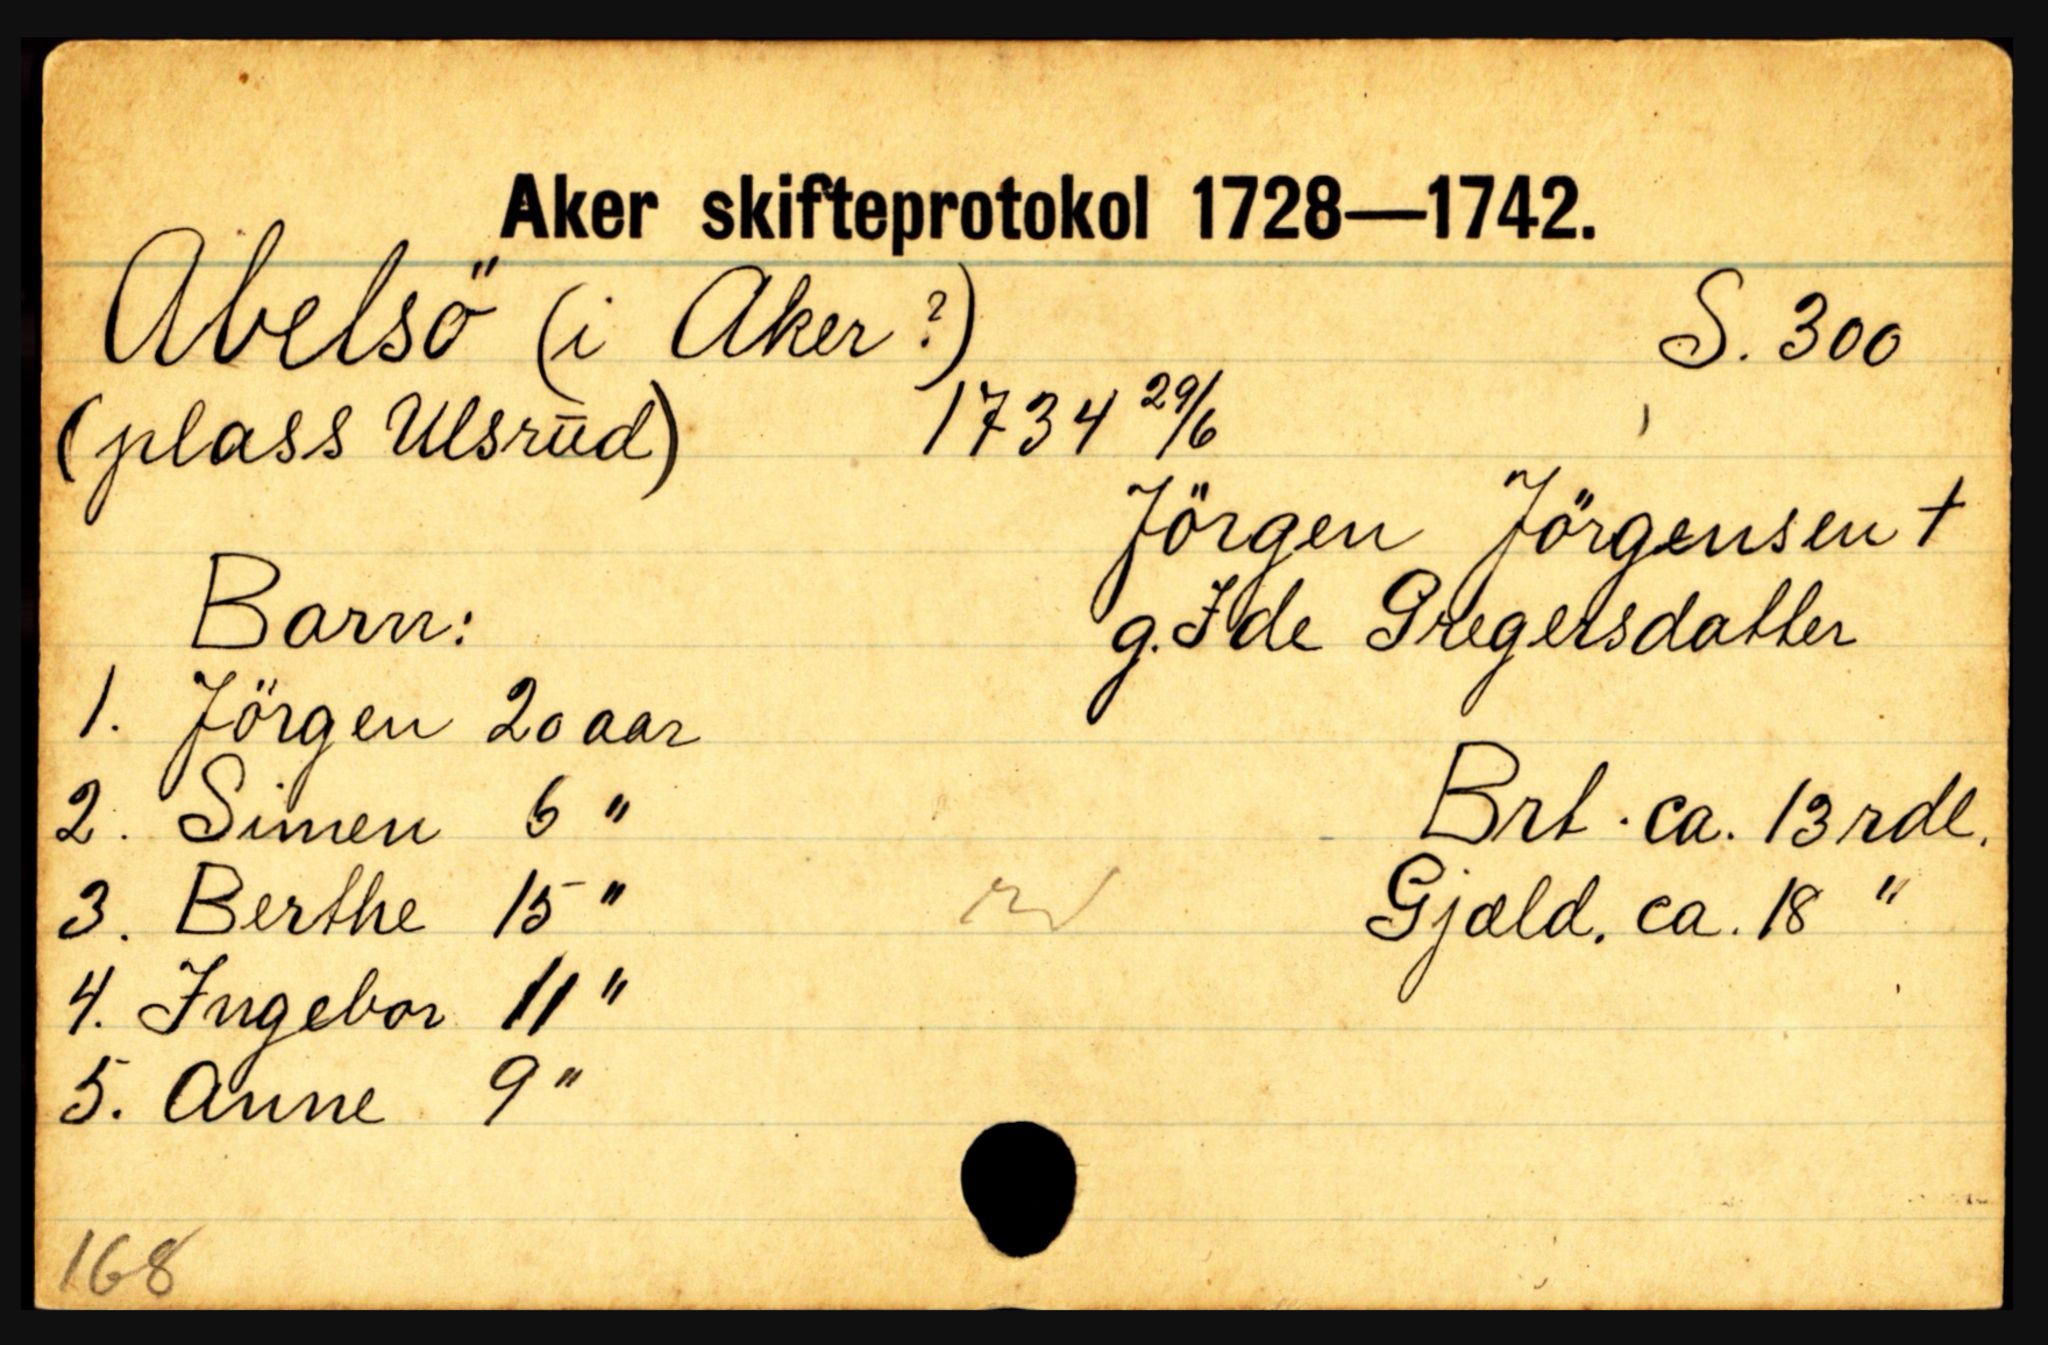 Aker skifteprotokol 1728—1742.
Abelsö (i Aker?) S. 300
(plass Ulsrūd) 1734 29/6
Jörgen Jörgensen +
Barn: g. Ide Gregersdatter
1. Jörgen 20 aar
2. Simen 6 " Brt. ca. 13 rdl.
3. Berthe 15 " Gjæld. ca. 18 "
4. Ingebor 11 "
5. Anne 9 "
168